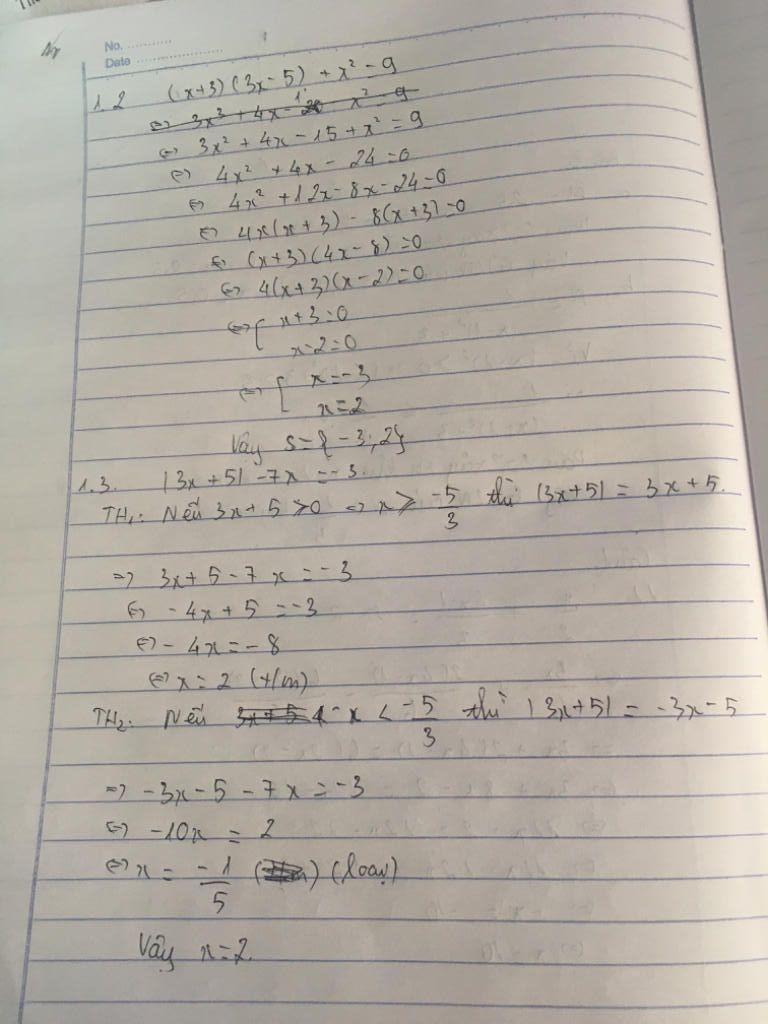 No. ............
Date .....................
1.2 (x+3)(3x-5) + x² = 9
⇔ 3x² + 4x - x² = 9
⇔ 3x² + 4x - 15 + x² = 9
⇔ 4x² + 4x - 24 = 0
⇔ 4x² + 12x - 8x - 24 = 0
⇔ 4x(x+3) - 8(x+3) = 0
⇔ (x+3)(4x-8) = 0
⇔ 4(x+3)(x-2) = 0
⇔ [ x+3 = 0
x-2 = 0
⇔ [ x = -3
x = 2
Vậy S = {-3; 2}
1.3. |3x+5| - 7x = -3
TH₁: Nếu 3x+5 ≥ 0 ⇒ x ≥ -5/3 thì |3x+5| = 3x+5.
⇒ 3x+5-7x = -3
⇔ -4x+5 = -3
⇔ -4x = -8
⇔ x = 2 (t/m)
TH₂: Nếu 3x+5 < x < -5/3 thì |3x+5| = -3x-5
⇒ -3x-5-7x = -3
⇔ -10x = 2
⇔ x = -1/5 (loại)
Vậy x = 2.